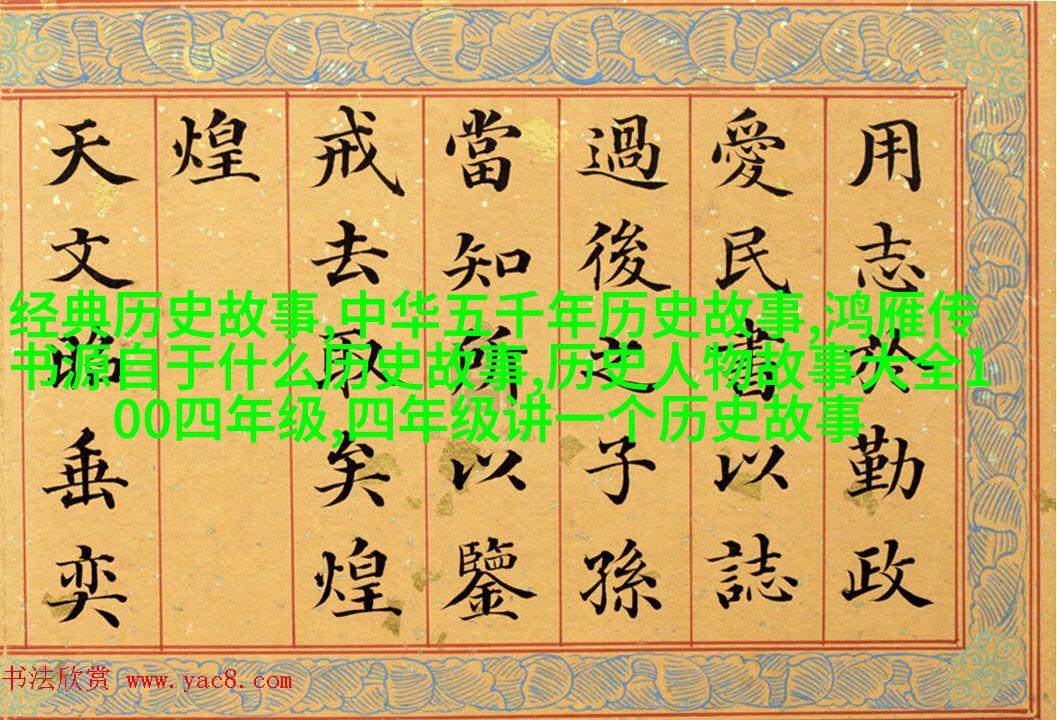 用志於勤政
愛民書以誌
過後之子孫
當知所以鑒
戒去取矣煌
煌
天文昭垂奕
经典历史故事,中华五千年历史故事,鸿雁传
书源自于什么历史故事,历史人物故事大全1
00四年级,四年级讲一个历史故事
书法欣赏 www.yac8.com